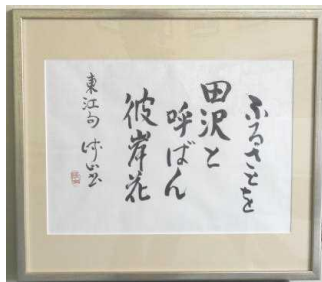 ふるさとを
田沢と
呼ばん
彼岸花
東江句